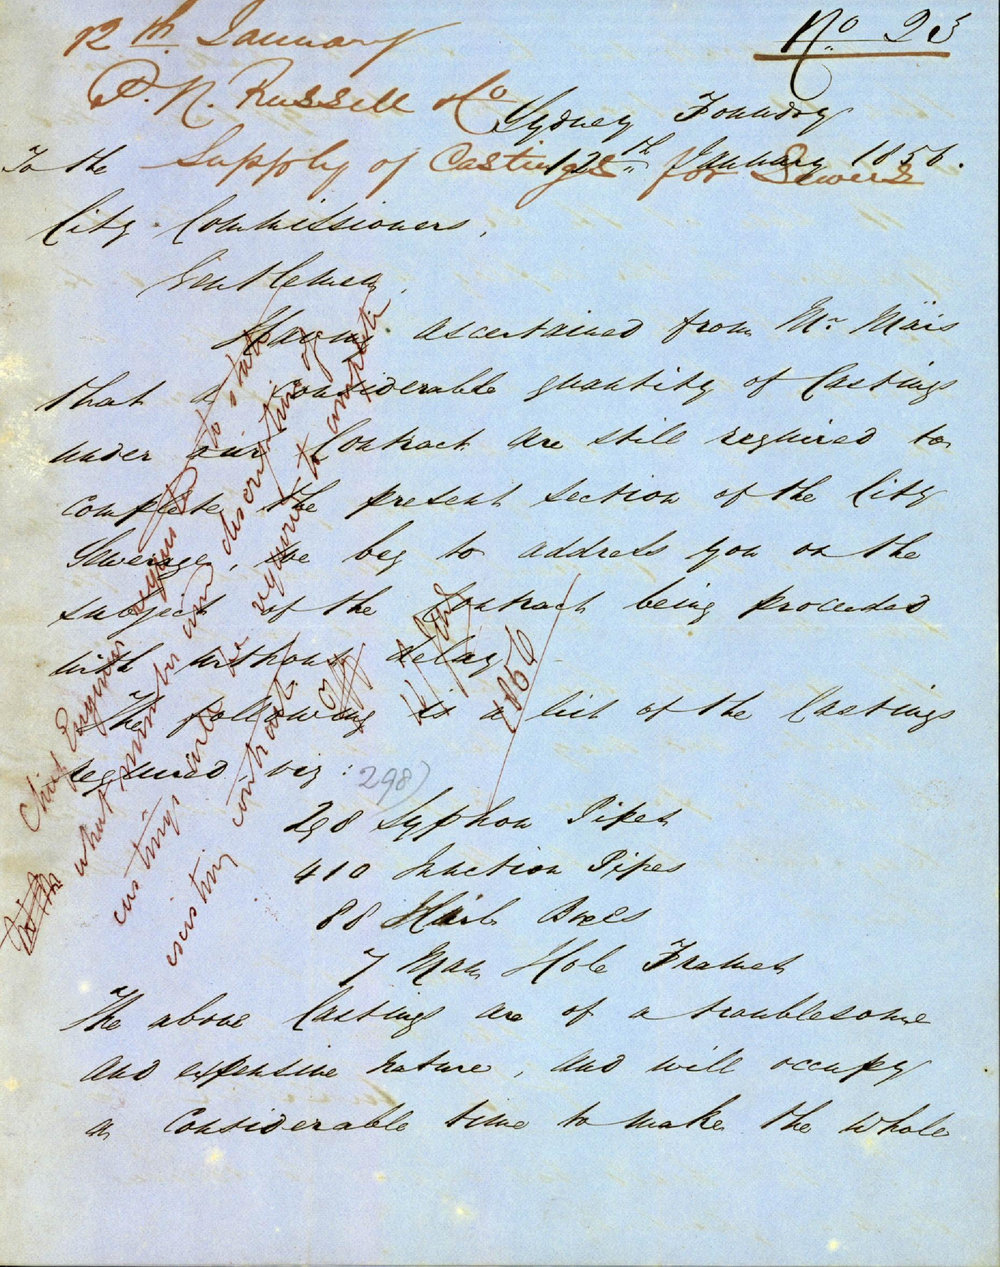 12th January
No 23
P. N. Russell & Co
Supply of Castings for Sewers
Sydney Foundry
12th January 1856.
To the
City Commissioners,
Gentlemen,
Having ascertained from Mr Mais
that a considerable quantity of Castings
under our Contract are still required to
complete the present section of the City
Sewerage, we beg to address you on the
subject of the Contract being proceeded
with without delay
The following is a list of the Castings
required, viz:
298)
298 Syphon Pipes
410 Junction Pipes
88 Kirb Boxes
7 Man Hole Frames
The above Castings are of a troublesome
and expensive nature, and will occupy
a considerable time to make the whole
Chief Engineer to state
what number and description of
castings will be required to complete
existing contract.
14 Jany
1856